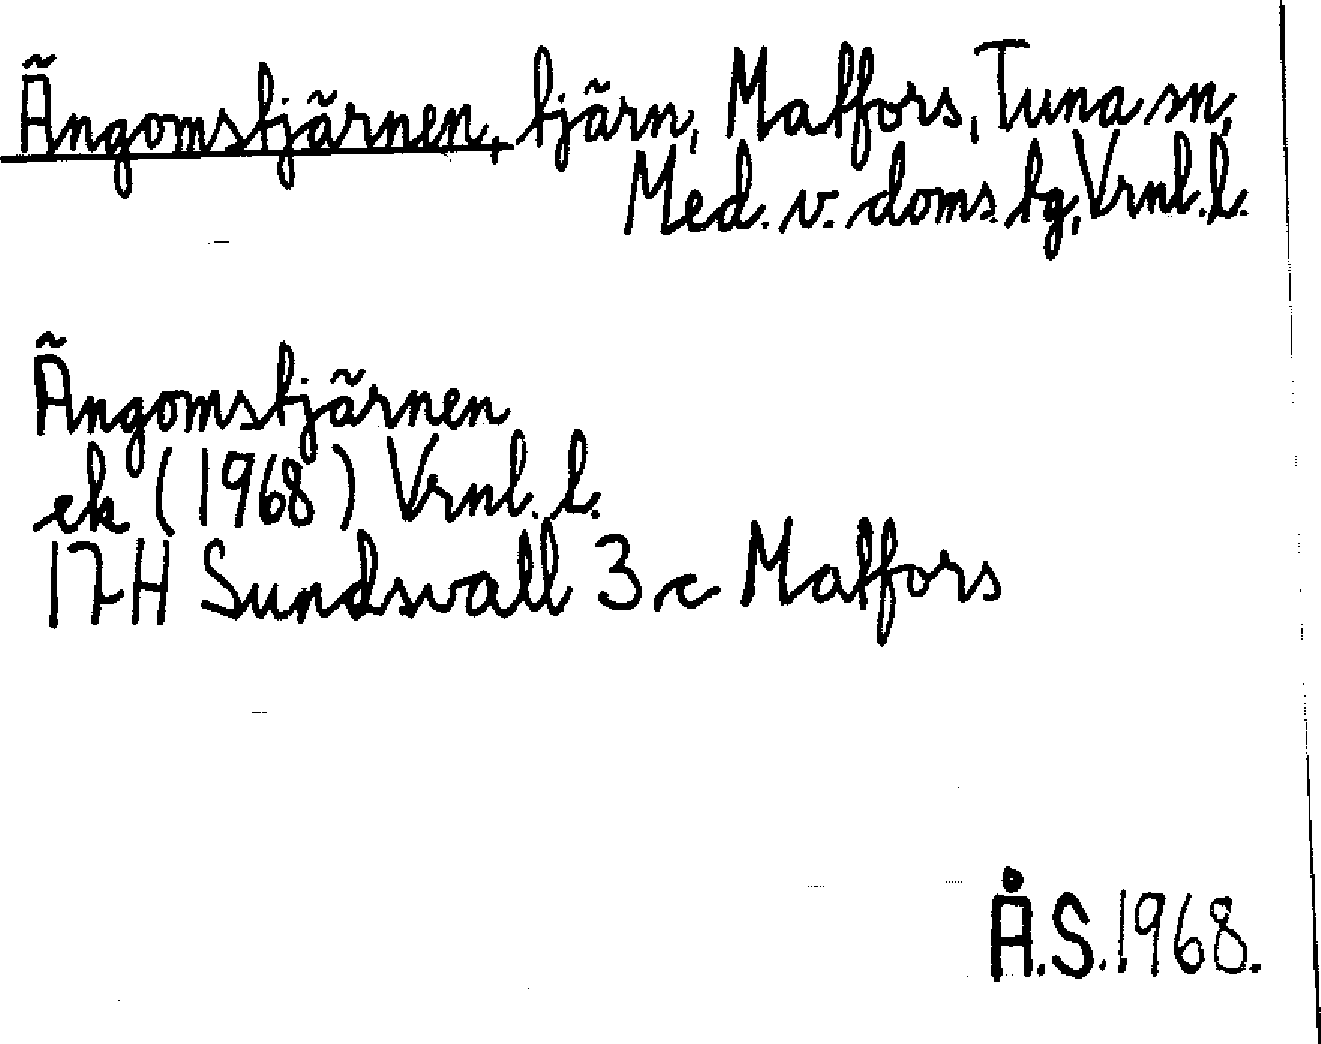 Ängomstjärnen, tjärn, Matfors, Tuna sn,
Med. v. doms. tg, Vrnl. l.
Ängomstjärnen
ek (1968) Vrnl. l.
17H Sundsvall 3 c Matfors
Å.S. 1968.